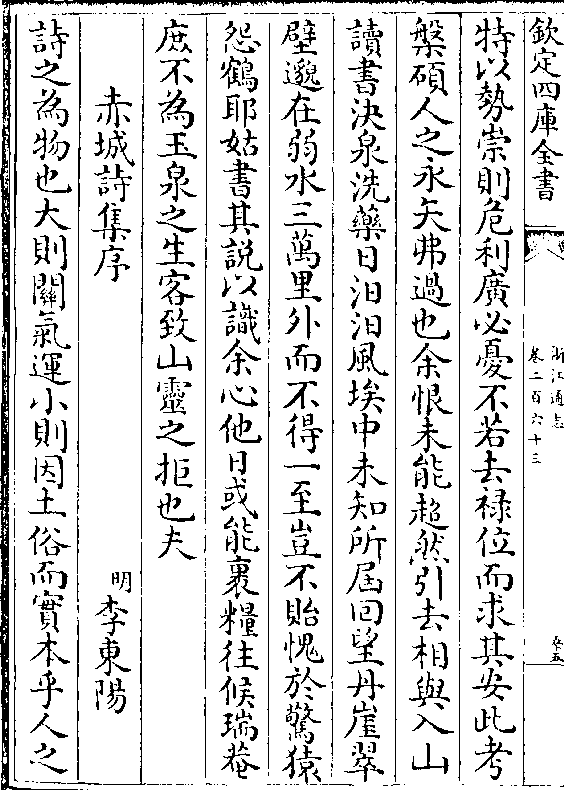 欽定四庫全書
浙江通志
卷二百六十三
特以勢崇則危利廣必憂不若去禄位而求其安此考
槃碩人之永矢弗過也余恨未能超然引去相與入山
讀書決泉洗藥日汨汨風埃中未知所届回望丹崖翠
壁邈在弱水三萬里外而不得一至豈不貽愧於驚猿
怨鶴耶姑書其說以識余心他日或能裹糧往候瑞菴
庶不為玉泉之生客致山靈之拒也夫
赤城詩集序
明李東陽
詩之為物也大則關氣運小則因土俗而實本乎人之